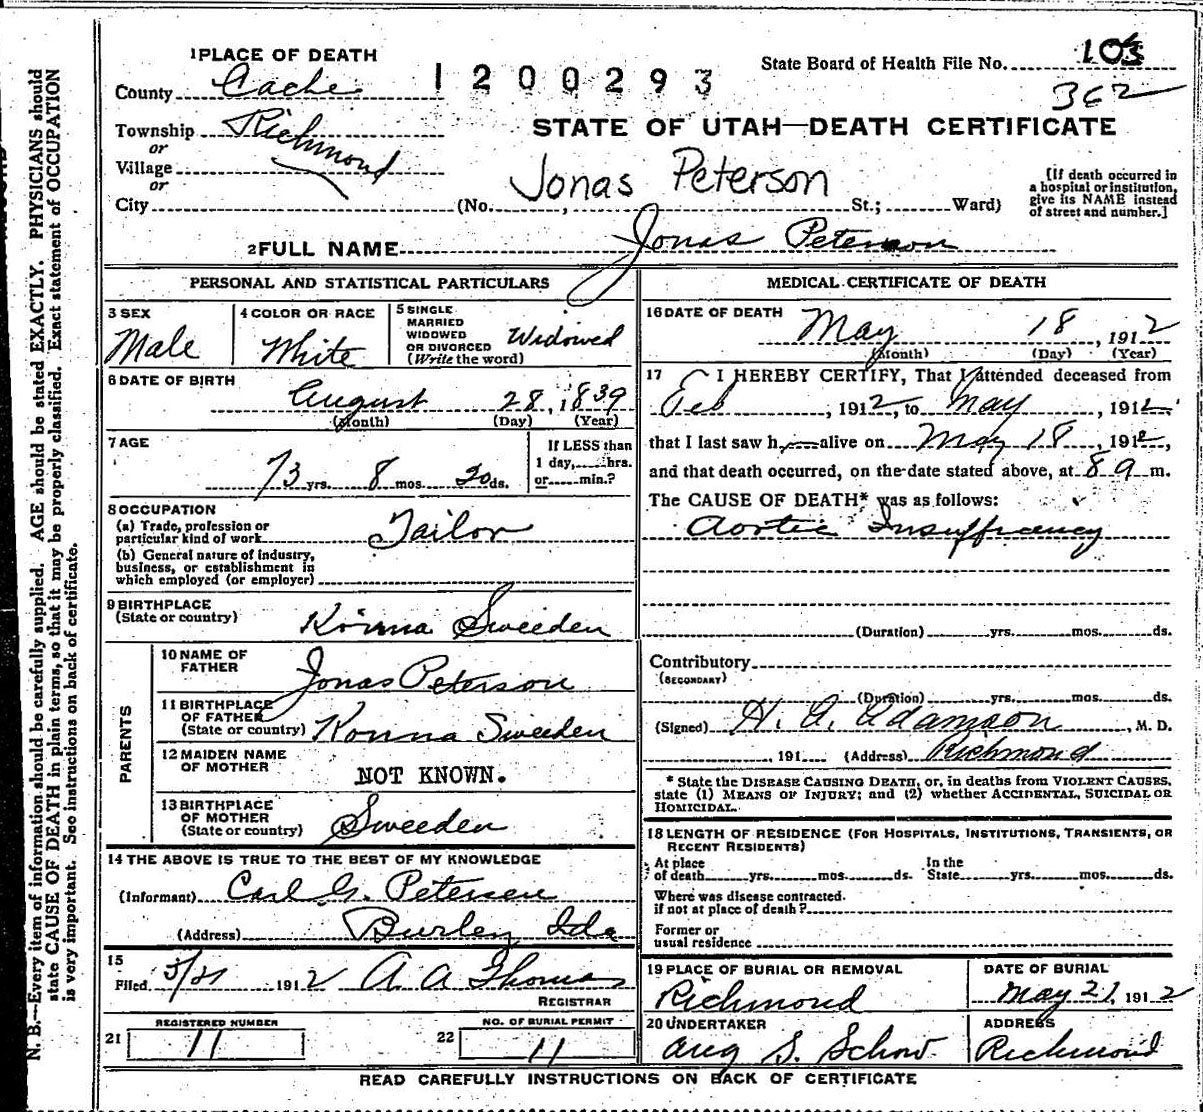 1 PLACE OF DEATH
County Cache
1200293
State Board of Health File No. 103
362
Township Richmond
or
Village
or
City
STATE OF UTAH—DEATH CERTIFICATE
Jonas Peterson
(No. , St.; Ward)
[If death occurred in
a hospital or institution,
give its NAME instead
of street and number.]
2 FULL NAME Jonas Peterson
PERSONAL AND STATISTICAL PARTICULARS
3 SEX
Male
4 COLOR OR RACE
White
5 SINGLE
MARRIED
WIDOWED
OR DIVORCED
(Write the word)
Widowed
6 DATE OF BIRTH
August 28, 1839
(Month) (Day) (Year)
7 AGE
73 yrs. 8 mos. 20 ds.
If LESS than
1 day, hrs.
or min.?
8 OCCUPATION
(a) Trade, profession or
particular kind of work Tailor
(b) General nature of industry,
business, or establishment in
which employed (or employer)
9 BIRTHPLACE
(State or country) Sweeden
PARENTS
10 NAME OF
FATHER Jonas Peterson
11 BIRTHPLACE
OF FATHER
(State or country) Konna Sweeden
12 MAIDEN NAME
OF MOTHER NOT KNOWN.
13 BIRTHPLACE
OF MOTHER
(State or country) Sweeden
14 THE ABOVE IS TRUE TO THE BEST OF MY KNOWLEDGE
(Informant) Carl G. Petersen
(Address) Burley Ida
15
Filed 5/21 1912 A A Thomas
REGISTRAR
21 REGISTERED NUMBER
11
22 NO. OF BURIAL PERMIT
11
MEDICAL CERTIFICATE OF DEATH
16 DATE OF DEATH May 18, 1912
(Month) (Day) (Year)
17 I HEREBY CERTIFY, That I attended deceased from
Feb , 1912, to May , 1912
that I last saw h alive on May 18, 1912,
and that death occurred, on the date stated above, at 8 a m.
The CAUSE OF DEATH* was as follows:
Aortic
(Duration) yrs. mos. ds.
Contributory
(SECONDARY)
(Duration) yrs. mos. ds.
(Signed) H. A. Adamson, M. D.
, 191 (Address) Richmond
* State the DISEASE CAUSING DEATH, or, in deaths from VIOLENT CAUSES,
state (1) MEANS OF INJURY; and (2) whether ACCIDENTAL, SUICIDAL OR
HOMICIDAL.
18 LENGTH OF RESIDENCE (FOR HOSPITALS, INSTITUTIONS, TRANSIENTS, OR
RECENT RESIDENTS)
At place
of death yrs. mos. ds.
In the
State yrs. mos. ds.
Where was disease contracted.
if not at place of death?
Former or
usual residence
19 PLACE OF BURIAL OR REMOVAL
Richmond
DATE OF BURIAL
May 21, 1912
20 UNDERTAKER
Aug S. Schow
ADDRESS
Richmond
READ CAREFULLY INSTRUCTIONS ON BACK OF CERTIFICATE
N. B.—Every item of information should be carefully supplied. AGE should be stated EXACTLY. PHYSICIANS should
state CAUSE OF DEATH in plain terms, so that it may be properly classified. Exact statement of OCCUPATION
is very important. See instructions on back of certificate.